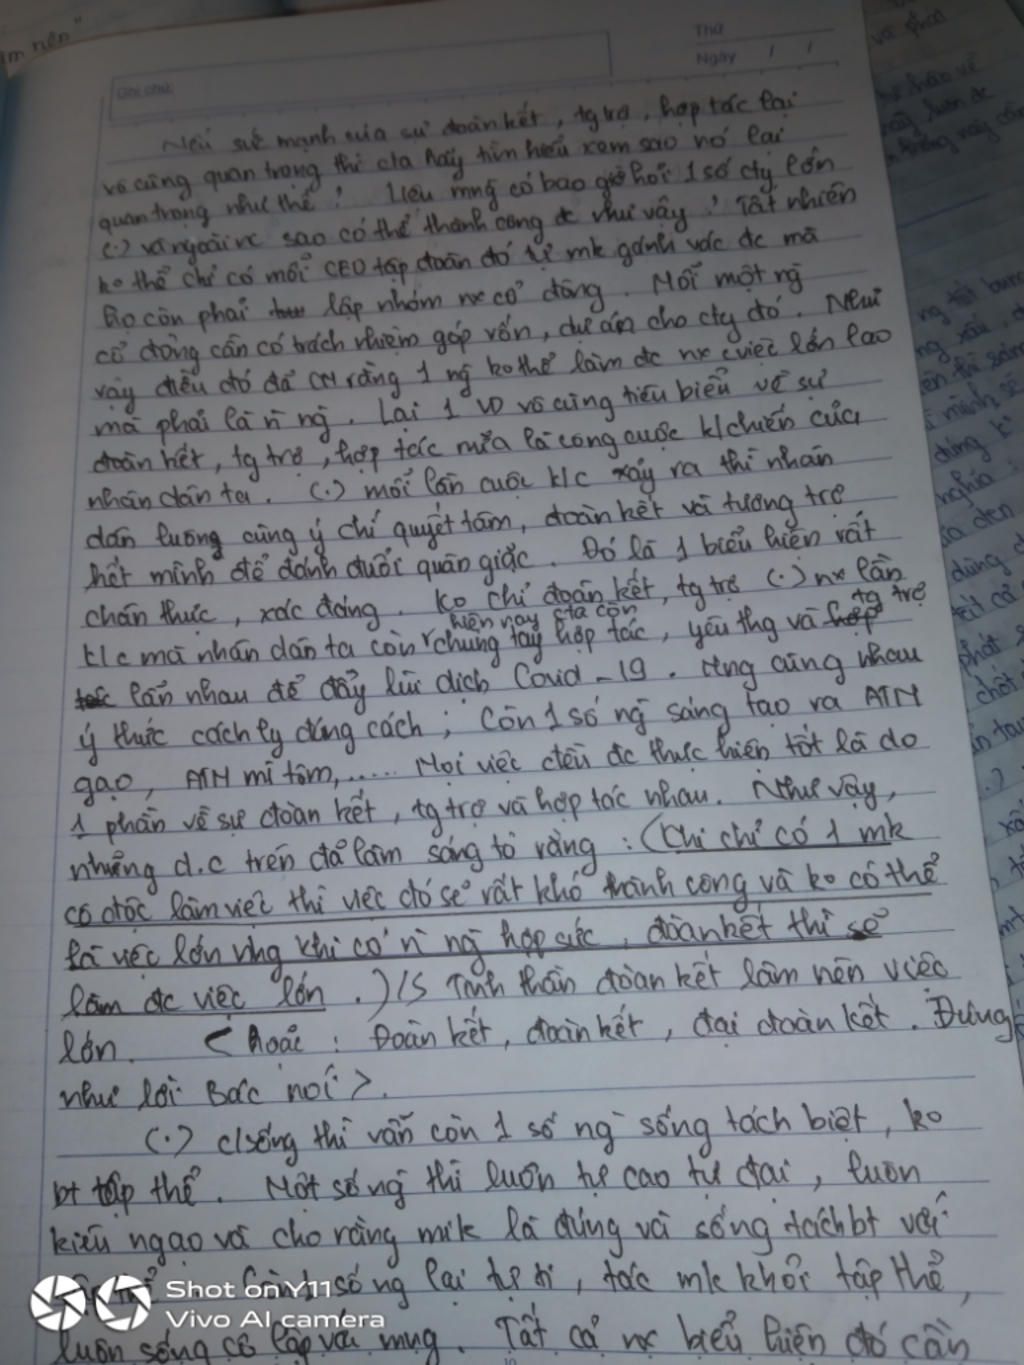 Thứ
Ngày / /
Ghi chú:
Nếu sức mạnh của sự đoàn kết, tg trợ, hợp tác lại
vô cùng quan trọng thì cta hãy tìm hiểu xem sao nó lại
quan trọng như thế? Liệu mng có bao giờ hỏi 1 số cty lớn
(.) và ngoài nc sao có thể thành công đc như vậy? Tất nhiên
ko thể chỉ có mỗi CEO tập đoàn đó tự mk gánh vác đc mà
họ còn phải lập nhóm nx cổ đông. Mỗi một ng
cổ đông cần có trách nhiệm góp vốn, dự án cho cty đó. Như
vậy điều đó đã CM rằng 1 ng ko thể làm đc nx cviệc lớn lao
mà phải là n ng. Lại 1 VD vô cùng tiêu biểu về sự
đoàn kết, tg trợ, hợp tác nữa là công cuộc k/chiến của
nhân dân ta. (.) mỗi lần cuộc k/c xảy ra thì nhân
dân luong cùng ý chí quyết tâm, đoàn kết và tương trợ
hết mình để đánh đuổi quân giặc. Đó là 1 biểu hiện rất
chân thực, xác đáng. Ko chỉ đoàn kết, tg trợ (.) nx lần
hiện nay cta còn tg trợ
k/c mà nhân dân ta còn chung tay hợp tác, yêu thg và hợp
tác lẫn nhau để đẩy lùi dịch Covid-19. cùng nhau
ý thức cách ly đúng cách; Còn 1 số ng sáng tạo ra ATM
gạo, ATM mì tôm,..... Mọi việc đều đc thực hiện tốt là do
1 phần về sự đoàn kết, tg trợ và hợp tác nhau. Như vậy,
những d.c trên đã làm sáng tỏ rằng: (Khi chỉ có 1 mk
cô độc làm việc thì việc đó sẽ rất khó thành công và ko có thể
là việc lớn nhg khi có n ng hợp sức, đoàn kết thì sẽ
làm đc việc lớn.) /S Tinh thần đoàn kết làm nên việc
lớn. < hoặc: Đoàn kết, đoàn kết, đại đoàn kết. Đúng
như lời Bác nói >.
(.) c/sống thì vẫn còn 1 số ng sống tách biệt, ko
bt tập thể. Một số ng thì luôn tự cao tự đại, luôn
kiêu ngạo và cho rằng mk là đúng và sống tách bt với
số ng lại tự ti, tác mk khỏi tập thể,
luôn sống cô lập với mng. Tất cả nx biểu hiện đó cần
Shot on Y11
Vivo AI camera